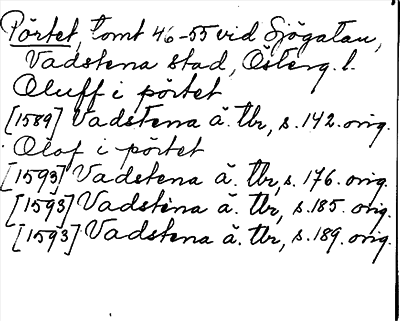 Pörtet, tomt 46-55 vid Sjögatan,
Vadstena stad, Österg. l.
Oluff i pörtet
[1589] Vadstena ä. Tbr, s. 142. orig.
Olof i pörtet
[1593] Vadstena ä. Tbr, s. 176. orig.
[1593] Vadstena ä. Tbr, s. 185. orig.
[1593] Vadstena ä. Tbr, s. 189. orig.